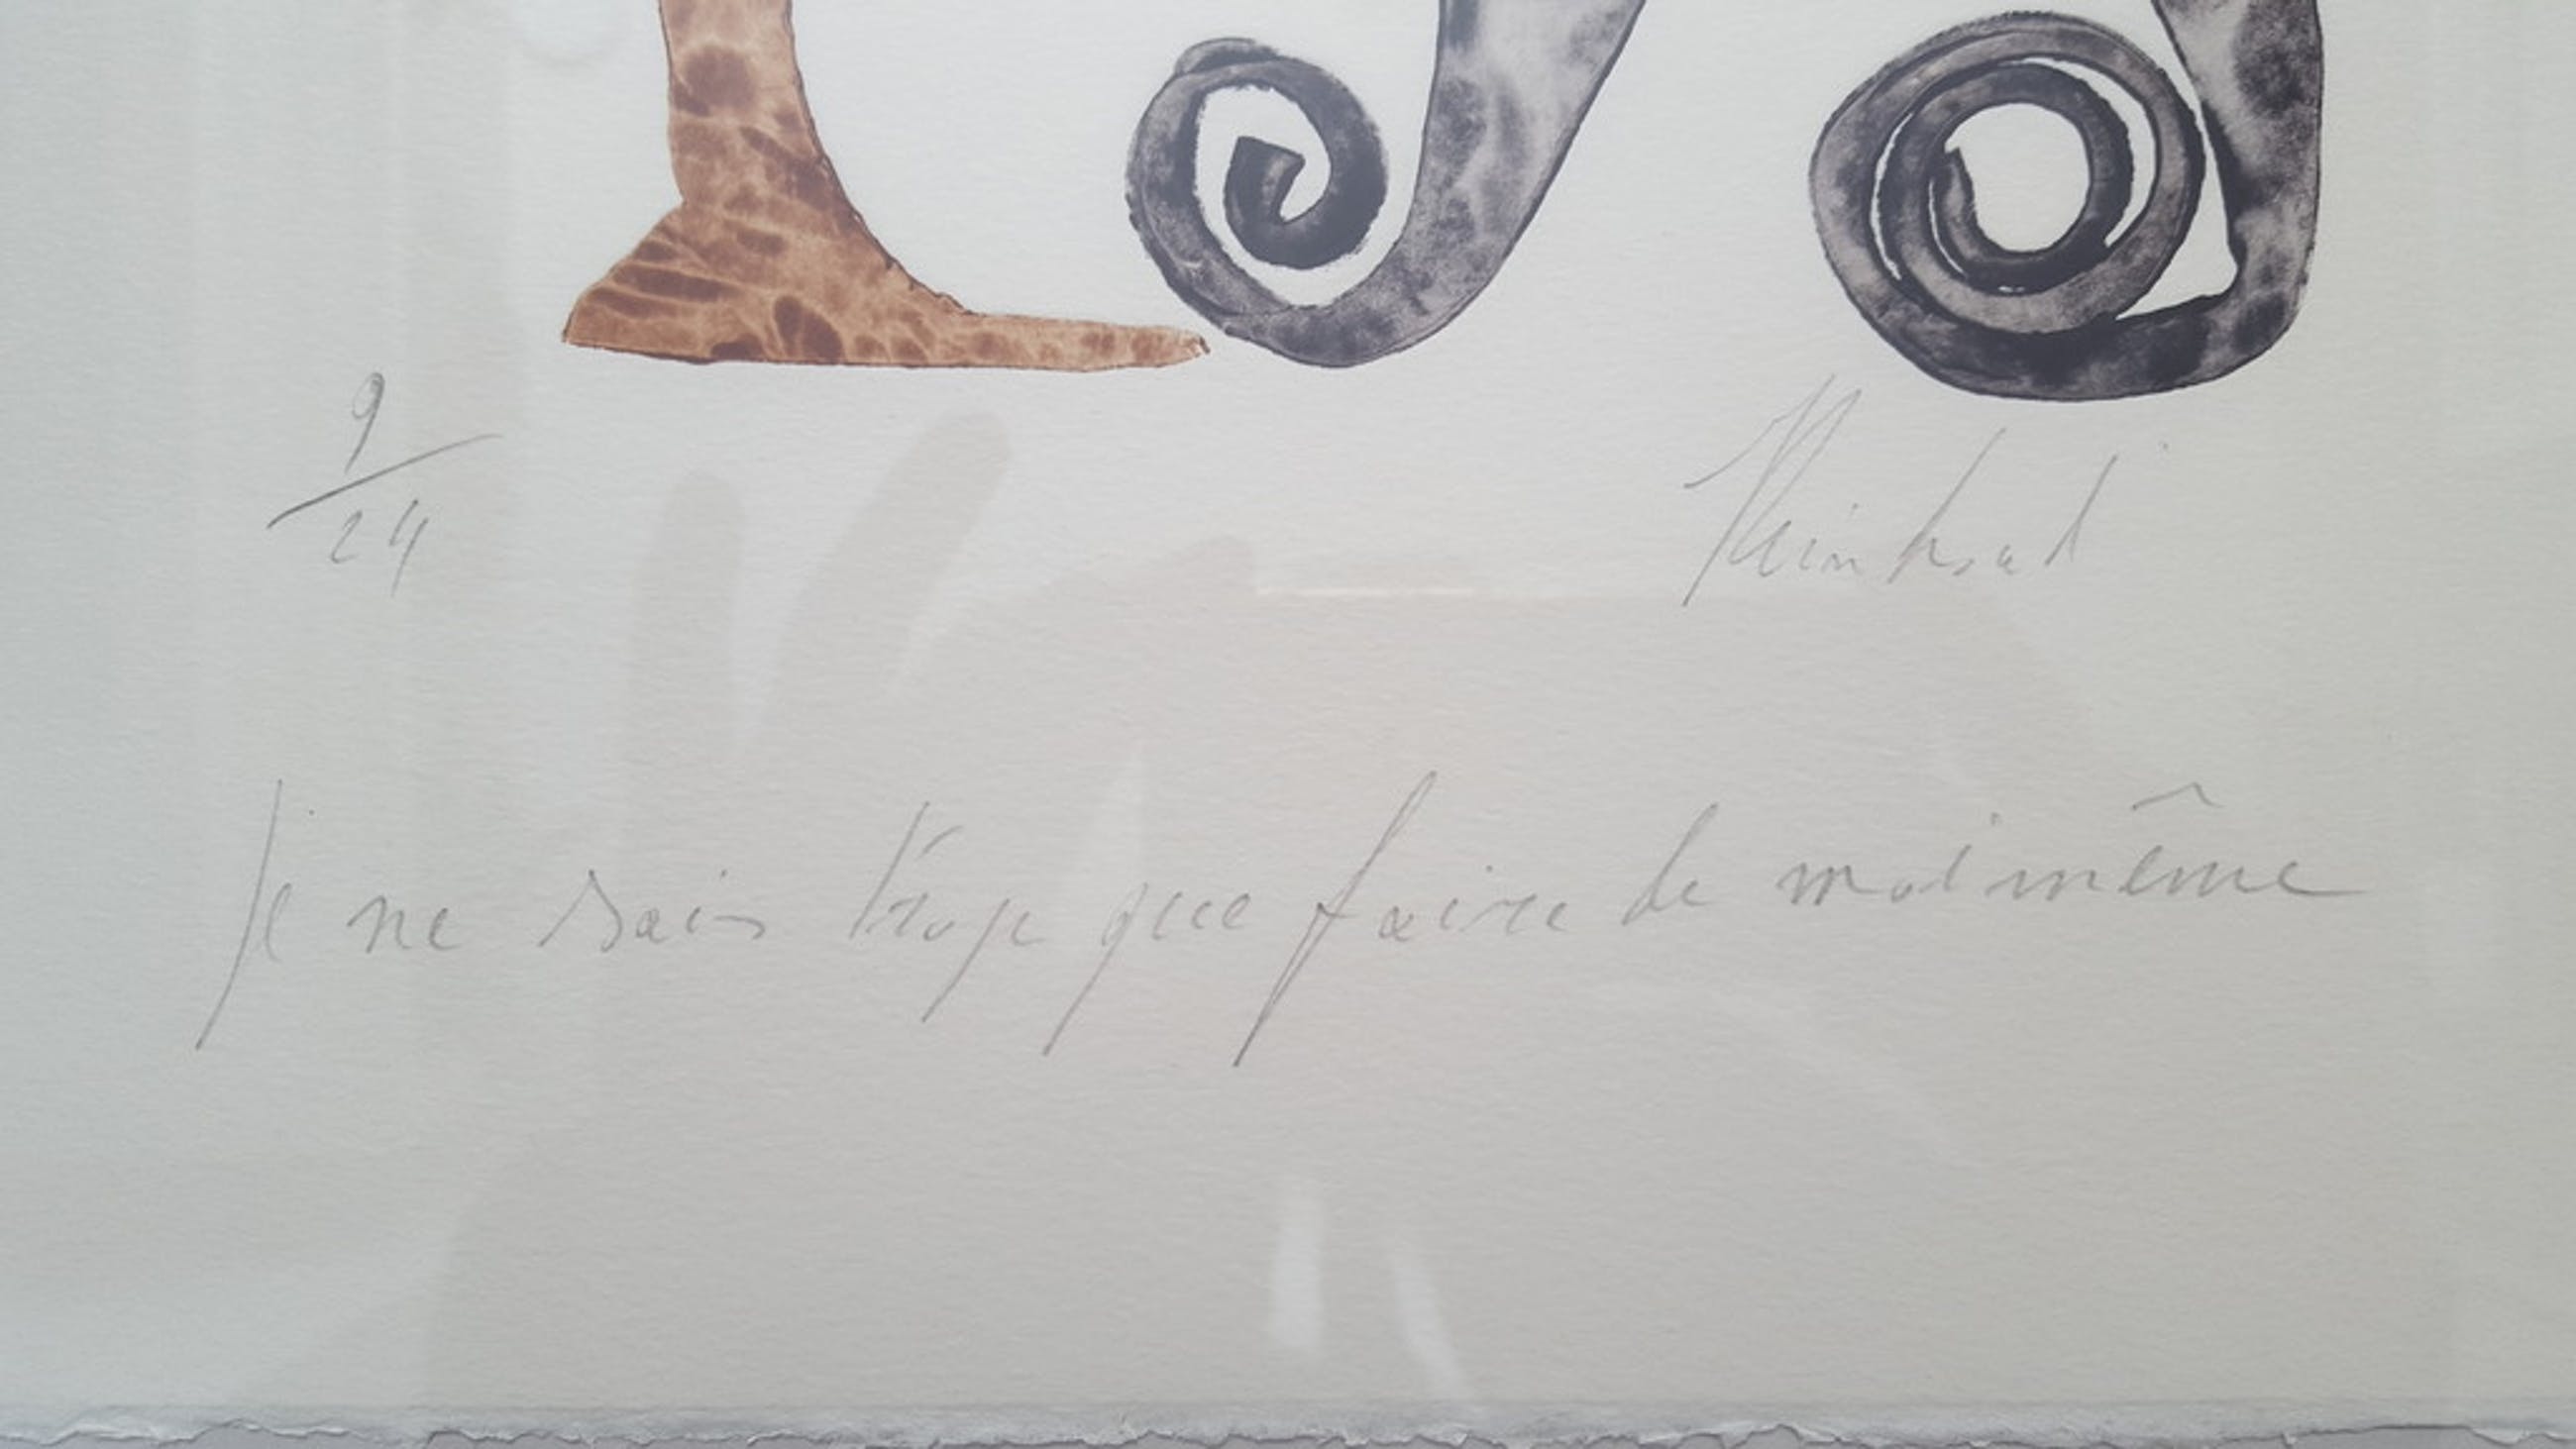 9/24
Reinhoud
Je ne sais trop que faire de moi même